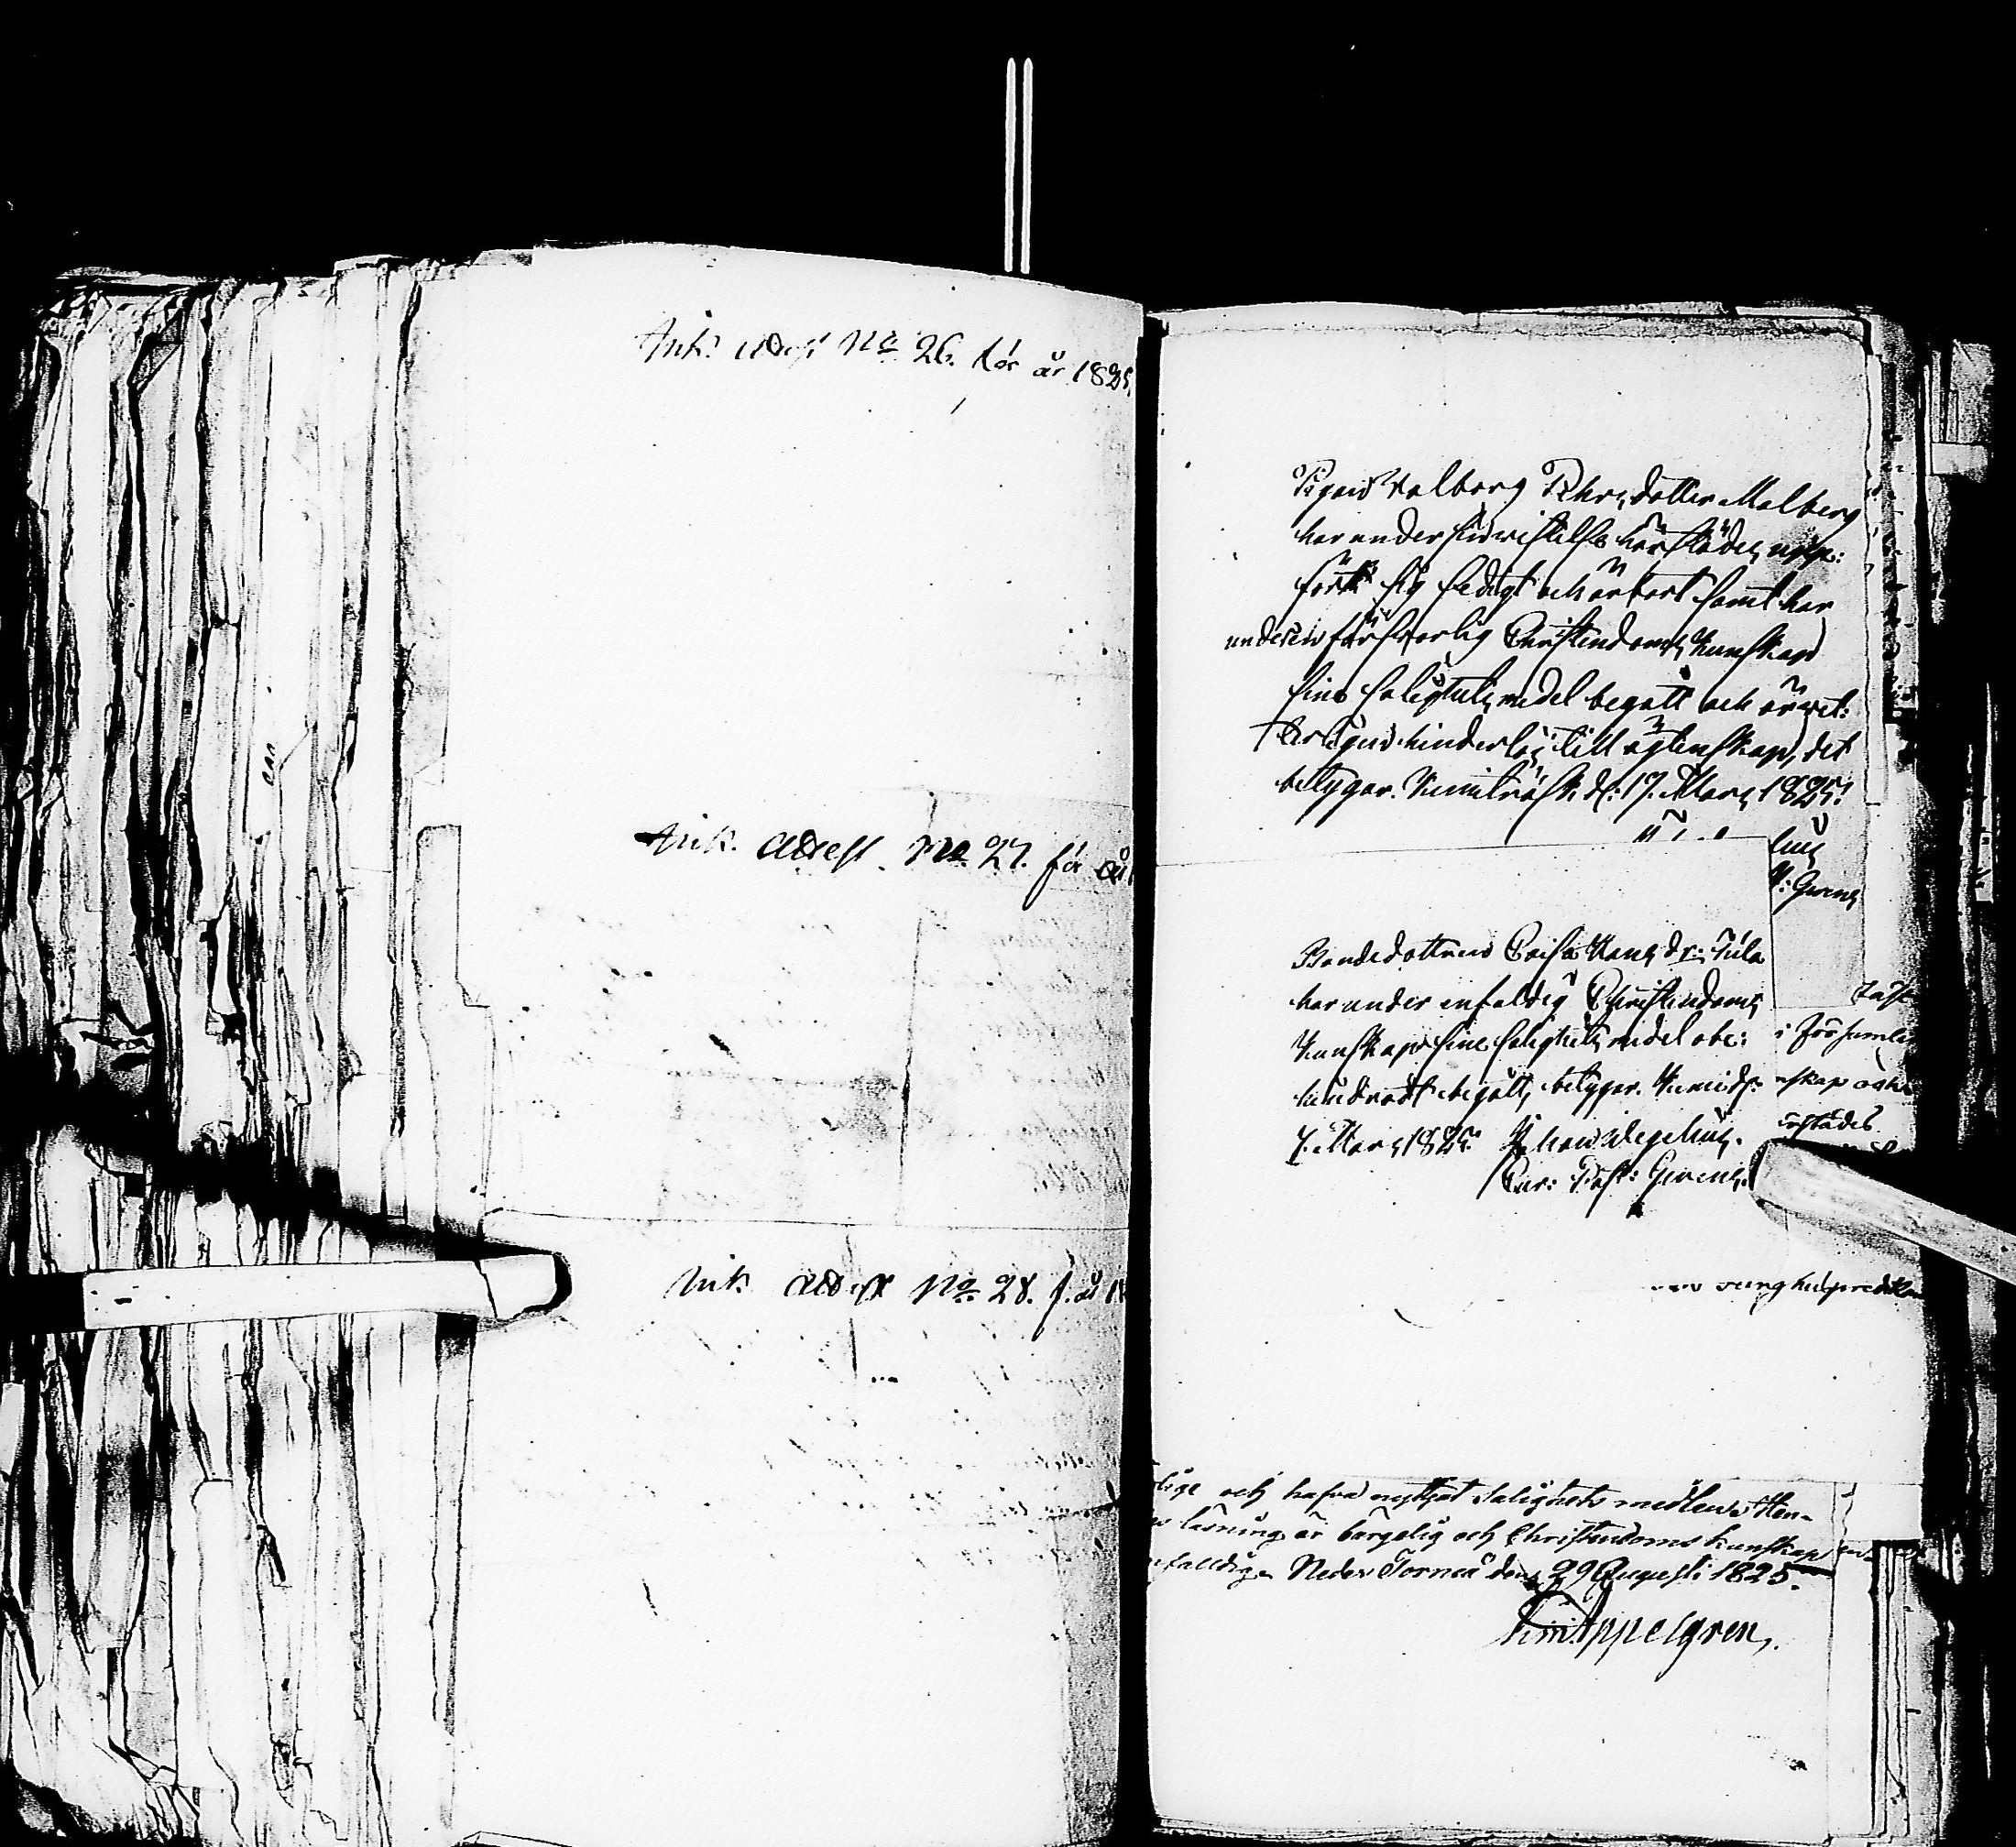 Ink. Attest No 26. för år 1825
Ink. Attest No 27. för år
Ink. Attest No 28. f. år 18
Pigan Walborg Pehrsdotter Malberg
har under sin wistelse härstädes upp:
fört sig sedigt och ärbart samt har
under en förswarlig Christendoms kunskap
sine salighets medel begått och är wet:
terligen hinderlös till ägtenskap, det
betygar. Kemiträsk d: 17. Mars 1825.
Bondedottren Caisa Hansdr:
har under enfaldig Christendoms
kunskap sine salighets medel obe:
hindradt begått, betygar. Kemi d:
7. Mars 1825. Johan Wegelius.
i församla
nskap och
ärstädes
lige och hafva nyttjat Salighets medlen. Hen-
läsning är bärgelig och Christendoms kunskap
nfalldig. Neder Torneå den 29 Augusti 1825.
Appelgren.